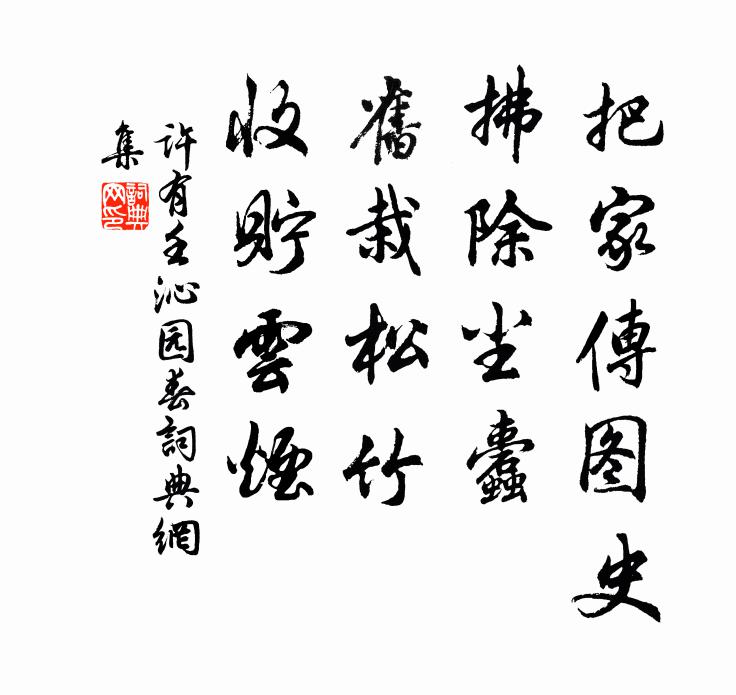 把家傳图史
拂除尘蠹
舊栽松竹
收貯雲煙
許有壬沁园春詞典網
集
詞典
网印